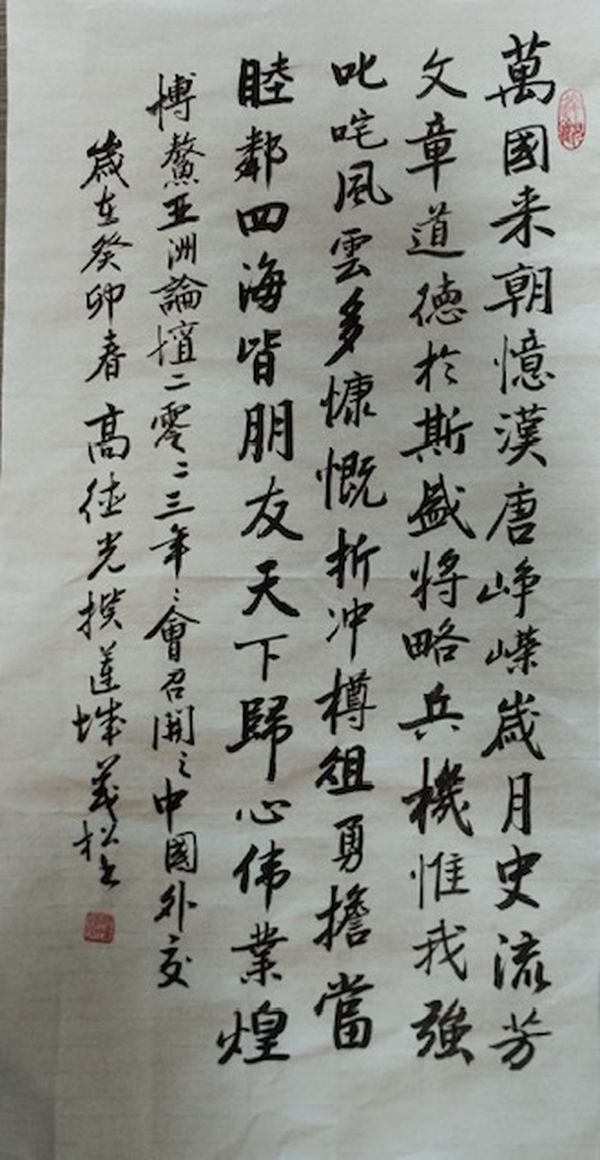 萬國来朝憶漢唐崢嶸歲月史流芳
文章道德於斯盛將略兵機惟我強
叱咤風雲多慷慨折冲樽俎勇擔當
睦鄰四海皆朋友天下歸心伟業煌
博鰲亚洲論壇二零二三年年會召開之中國外交
歲在癸卯春高德光撰蓮城義松书